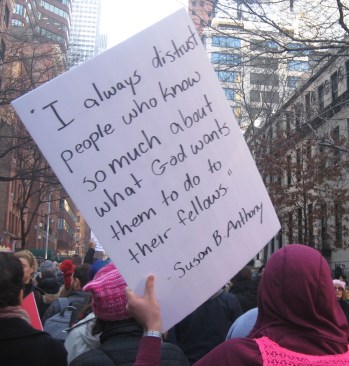 "I always distrust
people who know
so much about
what God wants
them to do to
their fellows."
- Susan B. Anthony